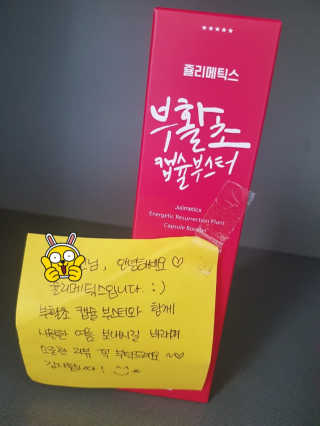 ★★★★★
쥴리메틱스
부활초
캡슐부스터
Julimetics
Energetic Resurrection Plant
Capsule Booster
님, 안녕하세요 ♡
쥴리메틱스입니다 :)
부활초 캡슐 부스터와 함께
시원한 여름 보내시길 바라며
소중한 리뷰 꼭 부탁드려요 ~♡
감사합니다!